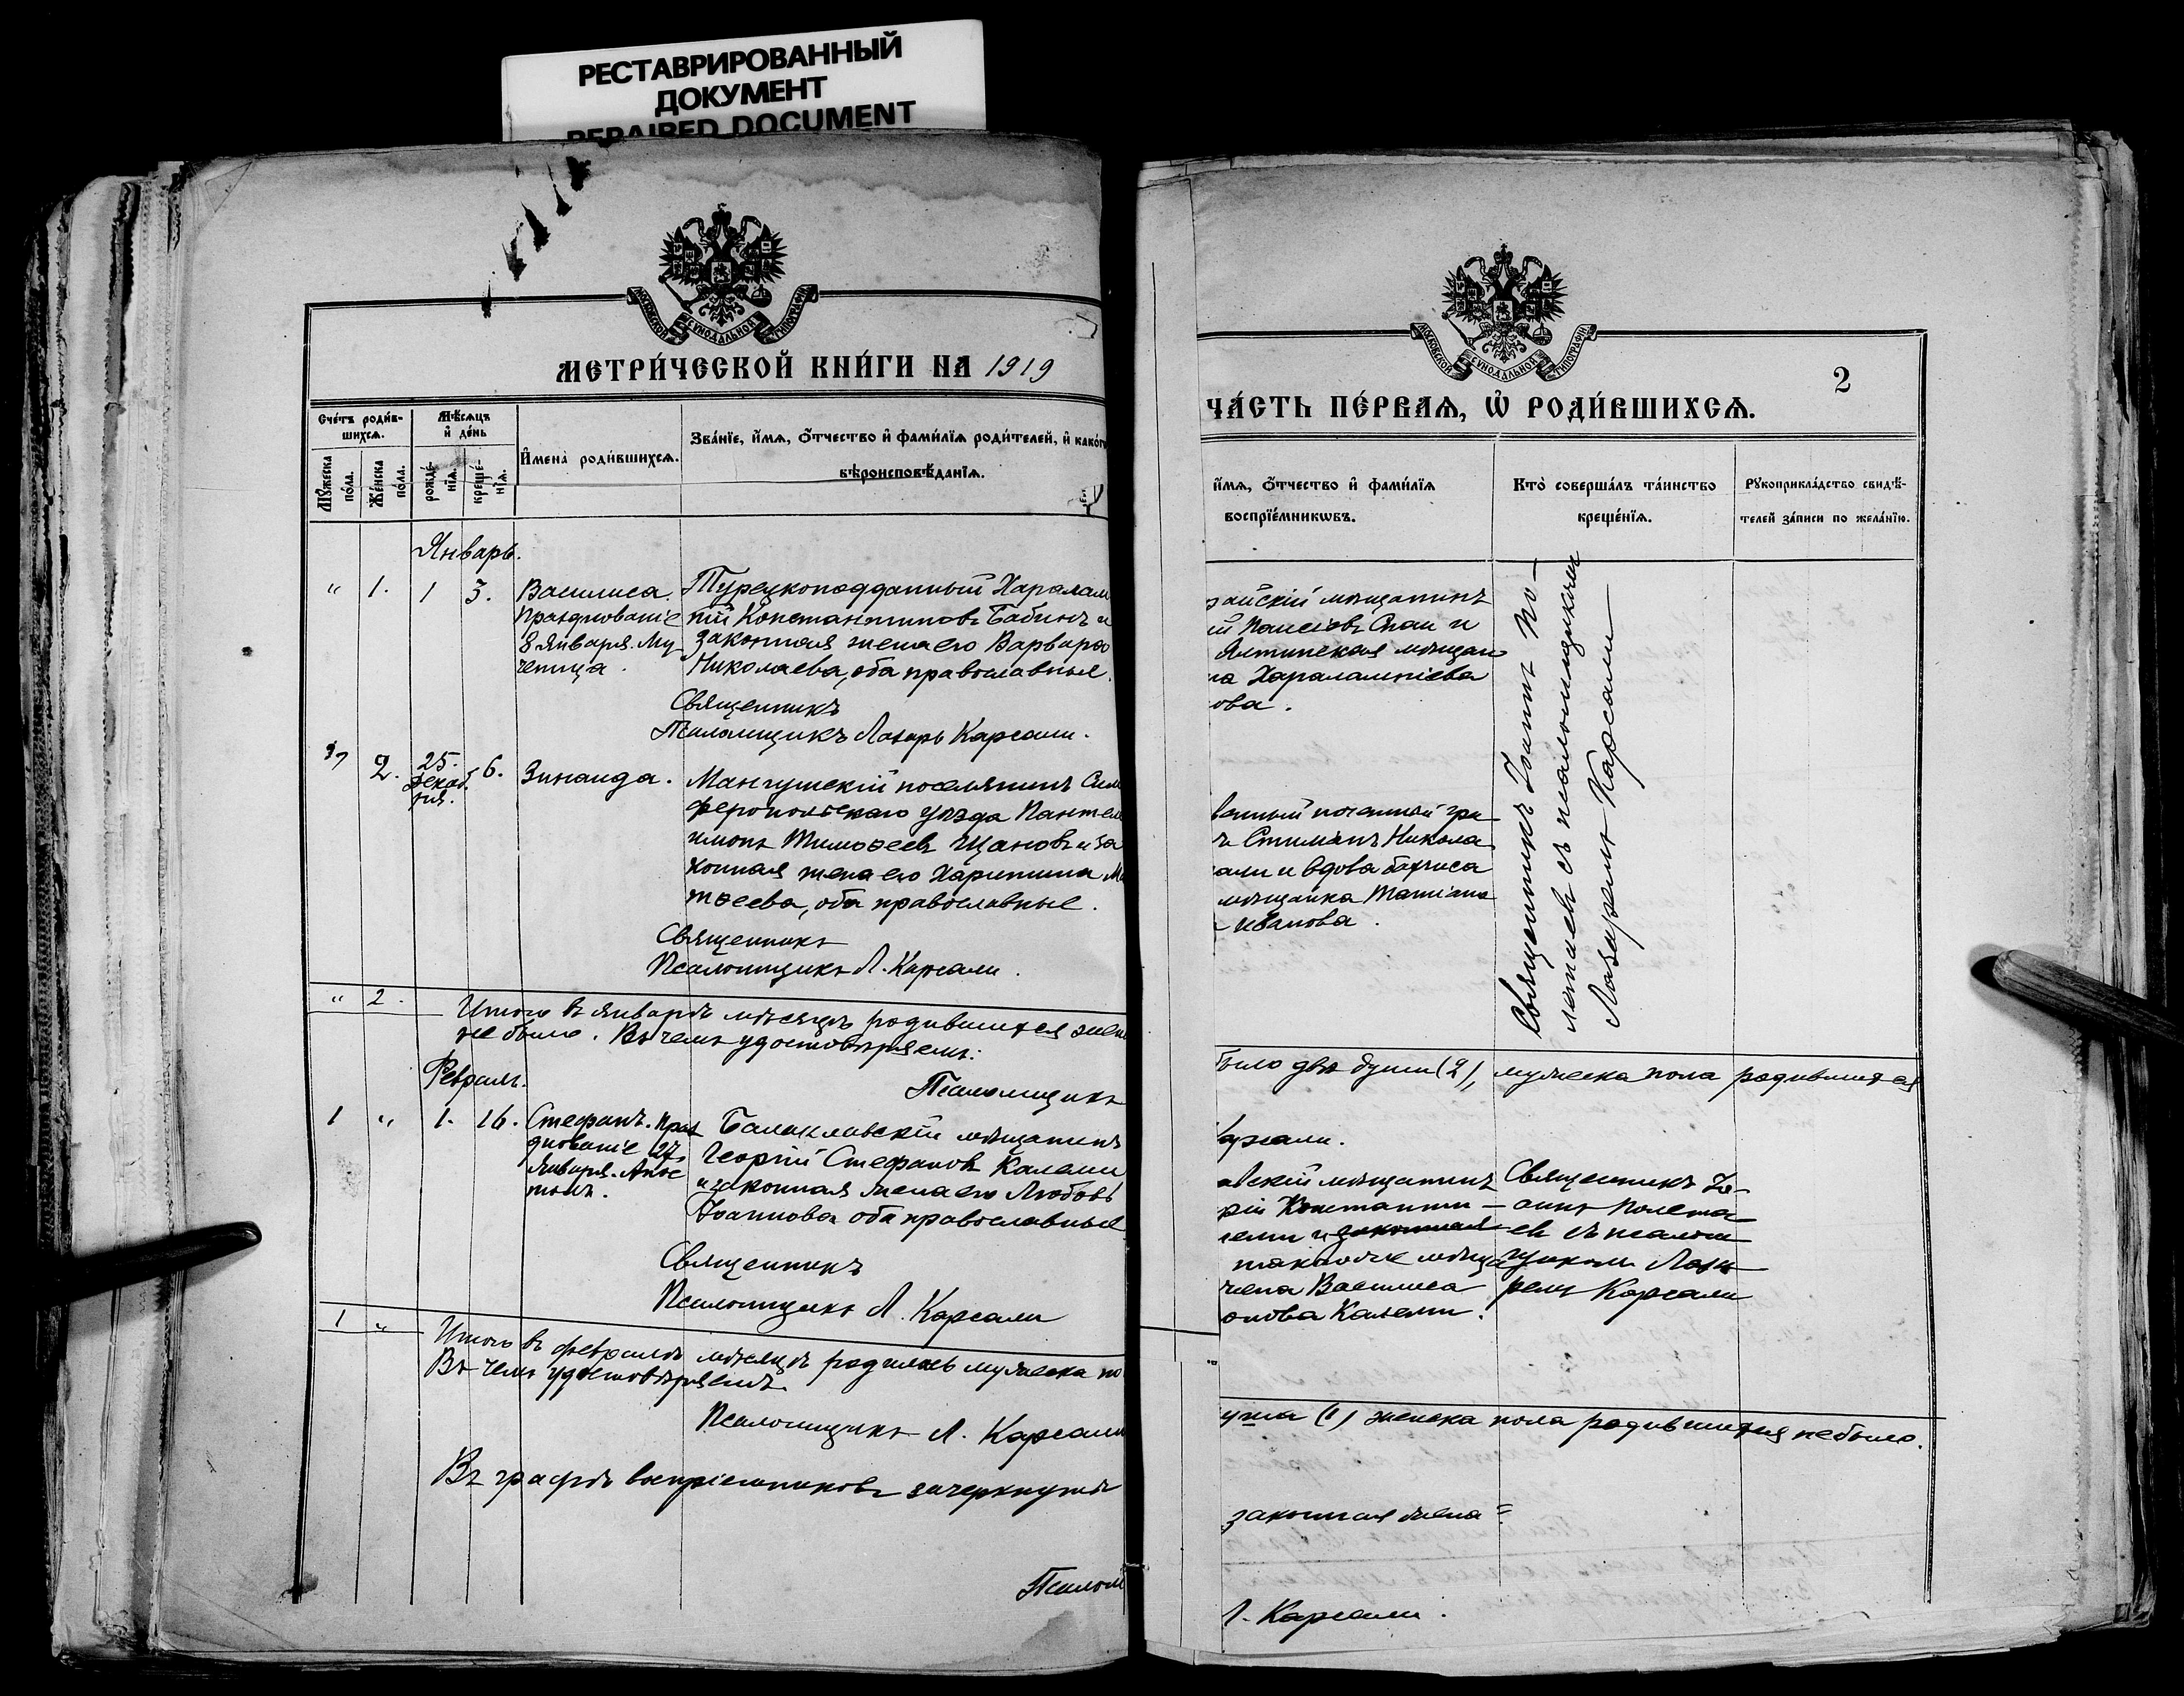 РЕСТАВРИРОВАННЫЙ
ДОКУМЕНТ
REPAIRED DOCUMENT
МОСКОВСКОЙ СѴНОДАЛЬНОЙ ТИПОГРАФІИ
МЕТРИ́ЧЕСКОЙ КНИ́ГИ НА 1919
Сче́тъ роди́в-
шихсѧ.
Мѣ́сѧцъ
и҆ де́нь
Мꙋ́жеска
по́ла.
Же́нска
по́ла.
рожде́-
нїѧ.
креще́-
нїѧ.
И҆мена̀ роди́вшихсѧ.
Зва́нїе, и҆́мѧ, ѻ҆́тчество и҆ фами́лїѧ роди́телей, и҆ како́гѡ
вѣроисповѣ́данїѧ.
Январь.
" 1. 1 3. Василиса.
Празднованіе
8 января. Му
ченица.
Турецкоподданный Харалам
пій Константиновъ Бабинъ и
законная жена его Варвара
Николаева, оба православные.
Священникъ
Псаломщикъ Лазарь Карсали.
" 2. 25. Декаб. 6. Зинаида.
Мангушскій поселянинъ Сим
феропольскаго уѣзда Пантеле
имонъ Тимоѳеевъ Щановъ и за
конная жена его Харитина Ма
тѳеева, оба православные.
Священникъ
Псаломщикъ Л. Карсали.
" 2.
Итого въ январѣ мѣсяцѣ родившихся жен
не было. Въ чемъ удостовѣряемъ:
Псаломщикъ
Февраль.
1 " 1. 16. Стефанъ. Праз
днованіе 27
Января. Апос
толъ.
Балаклавскій мѣщанинъ
Георгій Стефановъ Калеми
и законная жена его Любовь
Іоаннова оба православные
Священникъ
Псаломщикъ Л. Карсали
1 "
Итого въ февралѣ мѣсяцѣ родилось мужеска по
Въ чемъ удостовѣряемъ
Псаломщикъ Л. Карсали
Въ графѣ воспріемниковъ зачеркнуто
Псалом
МОСКОВСКОЙ СѴНОДАЛЬНОЙ ТИПОГРАФІИ
2
ЧА́СТЬ ПЕ́РВАѦ, Ѡ҆ РОДИ́ВШИХСѦ.
и҆́мѧ, ѻ҆́тчество и҆ фами́лїѧ
воспрїе́мникѡвъ.
Кто̀ соверша́лъ та́инство
креще́нїѧ.
Рꙋкоприкла́дство свидѣ́-
телей за́писи по жела́нїю.
айскій мѣщанинъ
ій Паисіевъ Спаи и
Ялтинская мѣщан
на Харалампіева
ова.
Священникъ Іоаннъ По-
летаевъ съ псаломщикомъ
Лазаремъ Карсали
венный почетный гра
ъ Стиліанъ Никола
али и вдова бахчиса
мѣщанка Татіана
Иванова.
было двѣ души (2), мужеска пола родившихся
Карсали.
авскій мѣщанинъ
рій Константи-
леми и законная
такъ же мѣща
чена Василиса
онова Калеми.
Священникъ Іо-
аннъ Полета
евъ съ псалом
щикомъ Лаза
ремъ Карсали
уша (1) женска пола родившихся не было.
законная жена"
Л. Карсали.